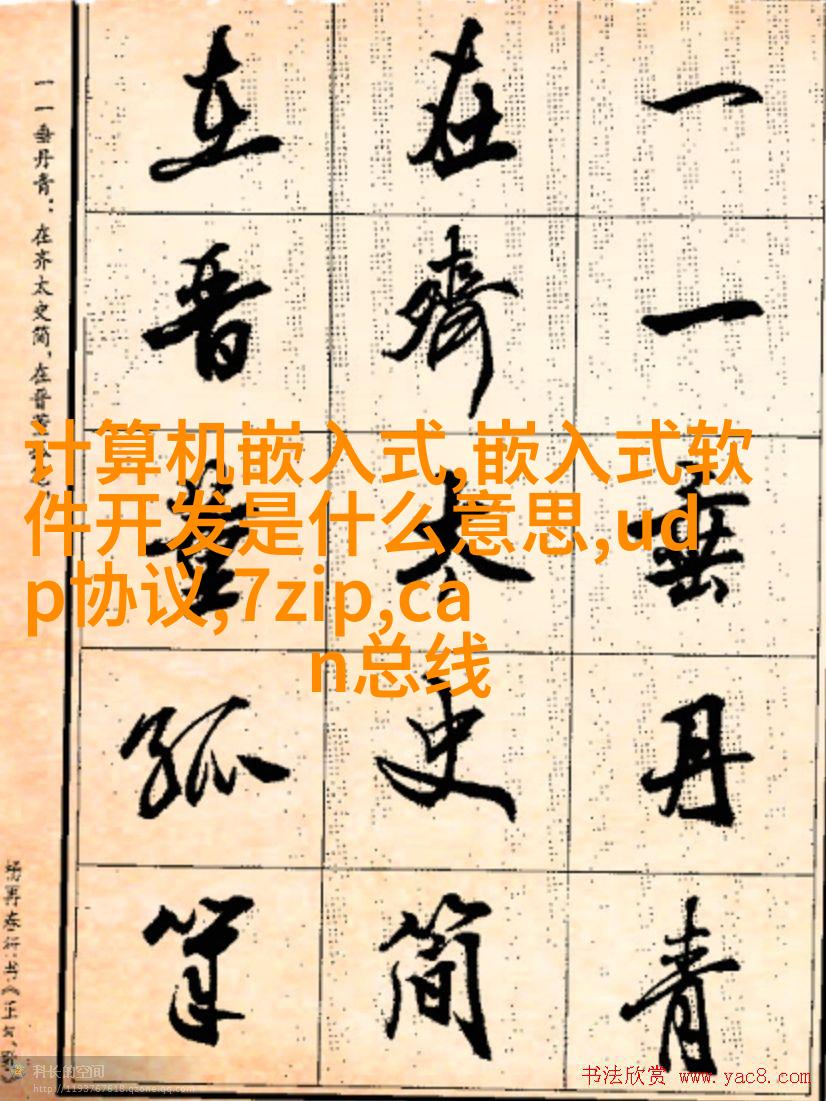 一一垂丹青
在齐太史简
在晋董狐笔
一一垂丹青：在齐太史简，在晋董
计算机嵌入式,嵌入式软
件开发是什么意思,ud
p协议,7zip,ca
n总线
科长的空间
http://1193767618.qzone.qq.com
书法欣赏 www.yac8.com